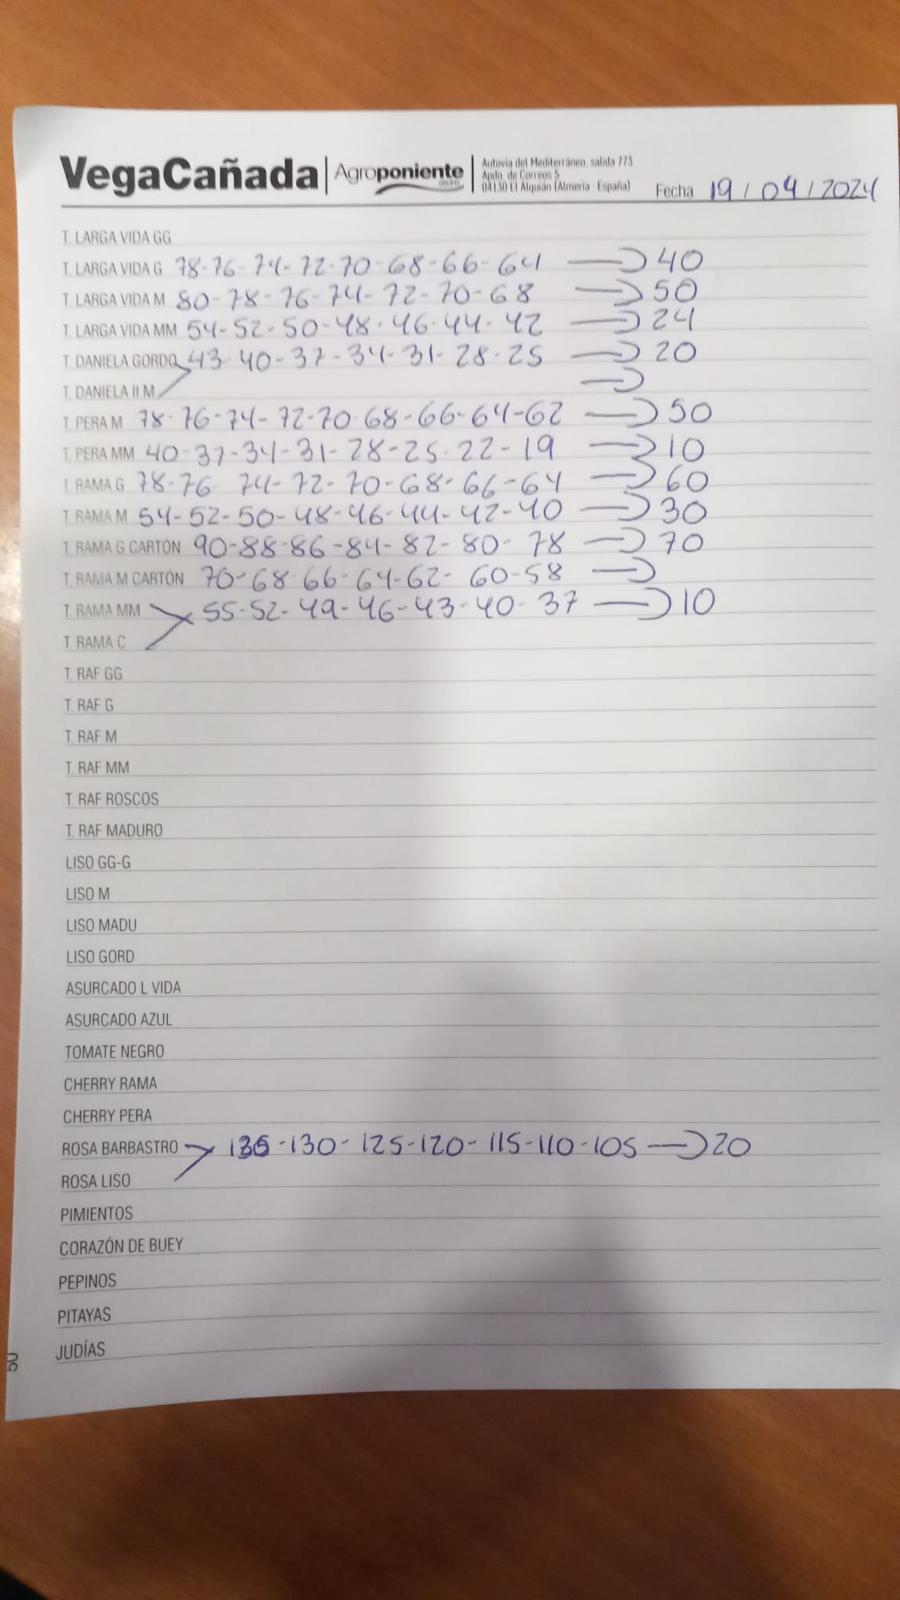 VegaCañada | Agroponiente GRUPO | Autovía del Mediterráneo, salida 773
Apdo. de Correos 5
04130 El Alquián (Almería España)
Fecha 19/04/2024
T. LARGA VIDA GG
T. LARGA VIDA G 78-76-74-72-70-68-66-64 → 40
T. LARGA VIDA M 80-78-76-74-72-70-68 → 50
T. LARGA VIDA MM 54-52-50-48-46-44-42 → 24
T. DANIELA GORDO 43-40-37-34-31-28-25 → 20
T. DANIELA II M →
T. PERA M 78-76-74-72-70-68-66-64-62 → 50
T. PERA MM 40-37-34-31-28-25-22-19 → 10
T. RAMA G 78-76 74-72-70-68-66-64 → 60
T. RAMA M 54-52-50-48-46-44-42-40 → 30
T. RAMA G CARTÓN 90-88-86-84-82-80-78 → 70
T. RAMA M CARTÓN 70-68-66-64-62-60-58 →
T. RAMA MM 55-52-49-46-43-40-37 → 10
T. RAMA C
T. RAF GG
T. RAF G
T. RAF M
T. RAF MM
T. RAF ROSCOS
T. RAF MADURO
LISO GG-G
LISO M
LISO MADU
LISO GORD
ASURCADO L VIDA
ASURCADO AZUL
TOMATE NEGRO
CHERRY RAMA
CHERRY PERA
ROSA BARBASTRO 135-130-125-120-115-110-105 → 20
ROSA LISO
PIMIENTOS
CORAZÓN DE BUEY
PEPINOS
PITAYAS
JUDÍAS